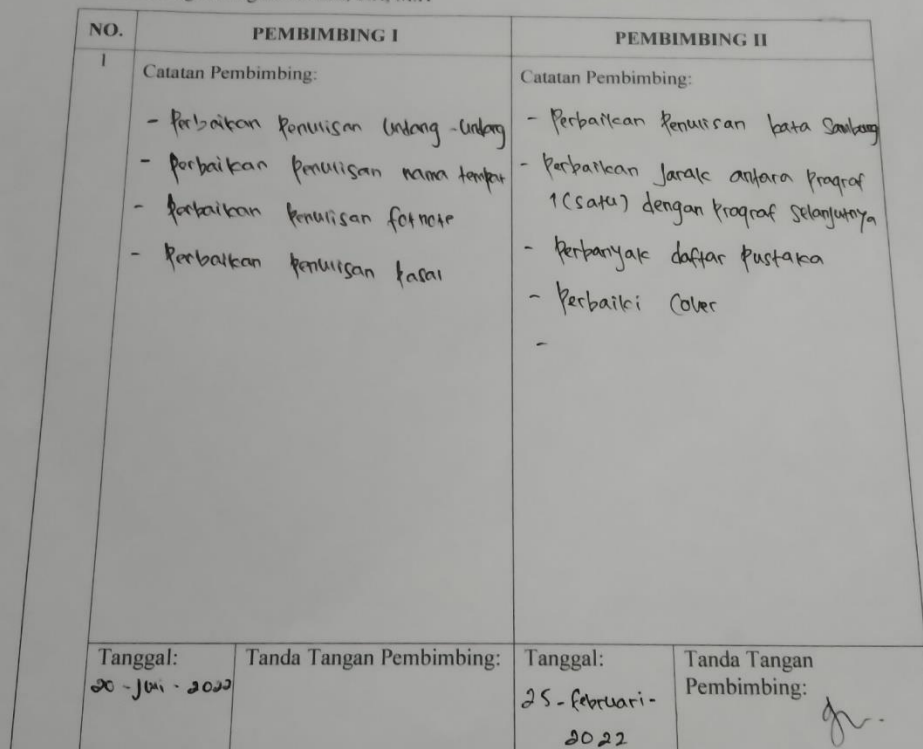 NO. PEMBIMBING I PEMBIMBING II
1
Catatan Pembimbing:
- Perbaikan Penulisan Undang-Undang
- Perbaikan Penulisan nama tempat
- Perbaikan Penulisan fotnote
- Perbaikan Penulisan Pasal
Catatan Pembimbing:
- Perbaikan Penulisan kata Sambung
- Perbaikan Jarak antara Pragraf
1 (satu) dengan Pragraf Selanjutnya
- Perbanyak daftar Pustaka
- Perbaiki Cover
-
Tanggal:
20 - - 2022
Tanda Tangan Pembimbing:
Tanggal:
25 - februari -
2022
Tanda Tangan
Pembimbing: